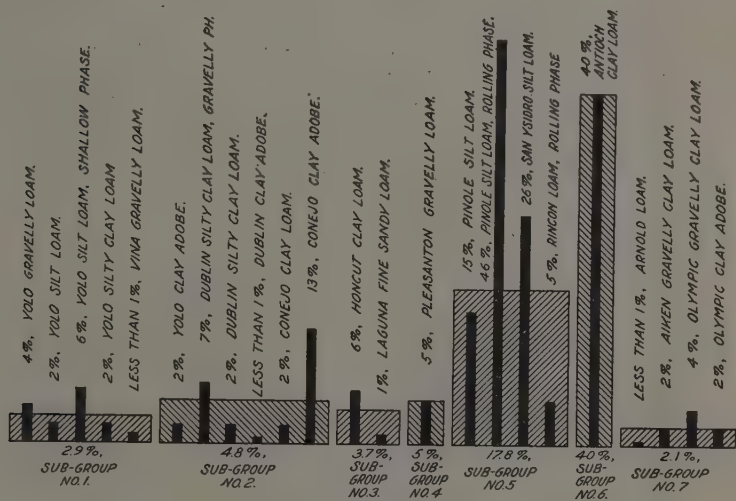 4%, YOLO GRAVELLY LOAM.
2%, YOLO SILT LOAM.
6%, YOLO SILT LOAM, SHALLOW PHASE.
2%, YOLO SILTY CLAY LOAM
LESS THAN 1%, VINA GRAVELLY LOAM.
2%, YOLO CLAY ADOBE.
7%, DUBLIN SILTY CLAY LOAM, GRAVELLY PH.
2%, DUBLIN SILTY CLAY LOAM.
LESS THAN 1%, DUBLIN CLAY ADOBE.
2%, CONEJO CLAY LOAM.
13%, CONEJO CLAY ADOBE.
6%, HONCUT CLAY LOAM.
1%, LAGUNA FINE SANDY LOAM.
5%, PLEASANTON GRAVELLY LOAM.
15%, PINOLE SILT LOAM.
46%, PINOLE SILT LOAM, ROLLING PHASE.
26%, SAN YSIDRO SILT LOAM.
5%, RINCON LOAM, ROLLING PHASE
40%,
ANTIOCH
CLAY LOAM.
LESS THAN 1%, ARNOLD LOAM.
2%, AIKEN GRAVELLY CLAY LOAM.
4%, OLYMPIC GRAVELLY CLAY LOAM.
2%, OLYMPIC CLAY ADOBE.
2.9%,
SUB-GROUP
NO.1.
4.8%,
SUB-GROUP
NO.2.
3.7%,
SUB-
GROUP
NO.3.
5%,
SUB-
GROUP
NO.4
17.8%,
SUB-GROUP
NO.5
40%,
SUB-
GROUP
NO.6.
2.1%,
SUB-GROUP
NO.7